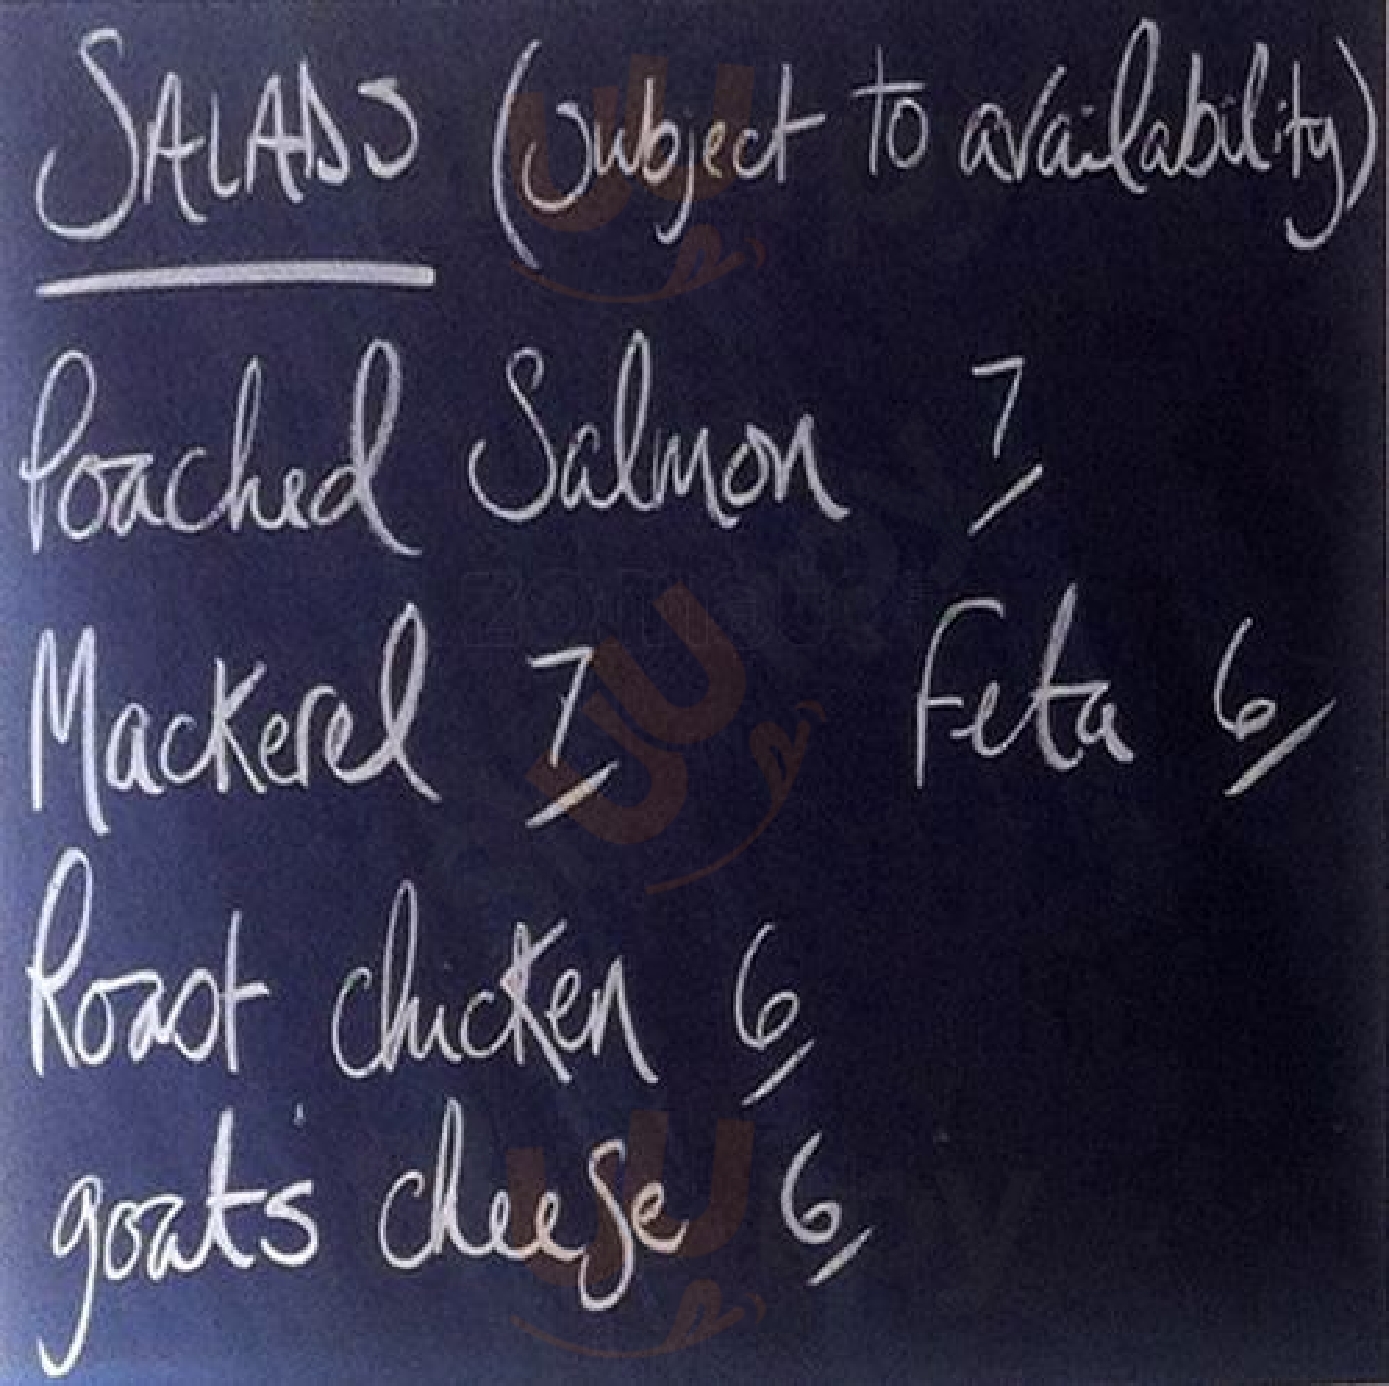 SALADS (subject to availability)
Poached Salmon 7
Mackerel 7 Feta 6
Roast chicken 6
goat's cheese 6